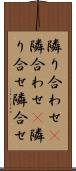 隣り合わせ×
隣合わせ×隣
り合せ隣合せ